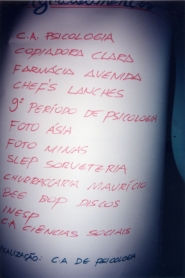 Agradecimentos
C.A. PSICOLOGIA
COPIADORA CLARA
FARMÁCIA AVENIDA
CHEF'S LANCHES
9º PERÍODO DE PSICOLOGIA
FOTO ÁSIA
FOTO MINAS
SLEP SORVETERIA
CHURRASCARIA MAURÍCIO
BEE BOP DISCOS
INESP
CA CIÊNCIAS SOCIAIS
REALIZAÇÃO: C.A DE PSICOLOGIA